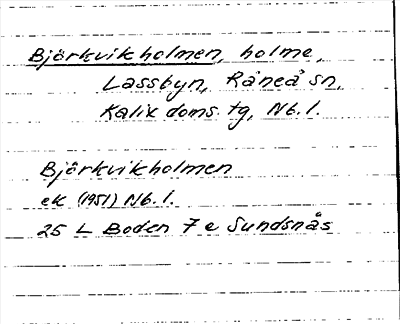 Björkvikholmen, holme,
Lassbyn, Råneå sn,
Kalix doms. tg, Nb. l.
Björkvikholmen
ek (1951) Nb. l.
25 L Boden 7 e Sundsnäs